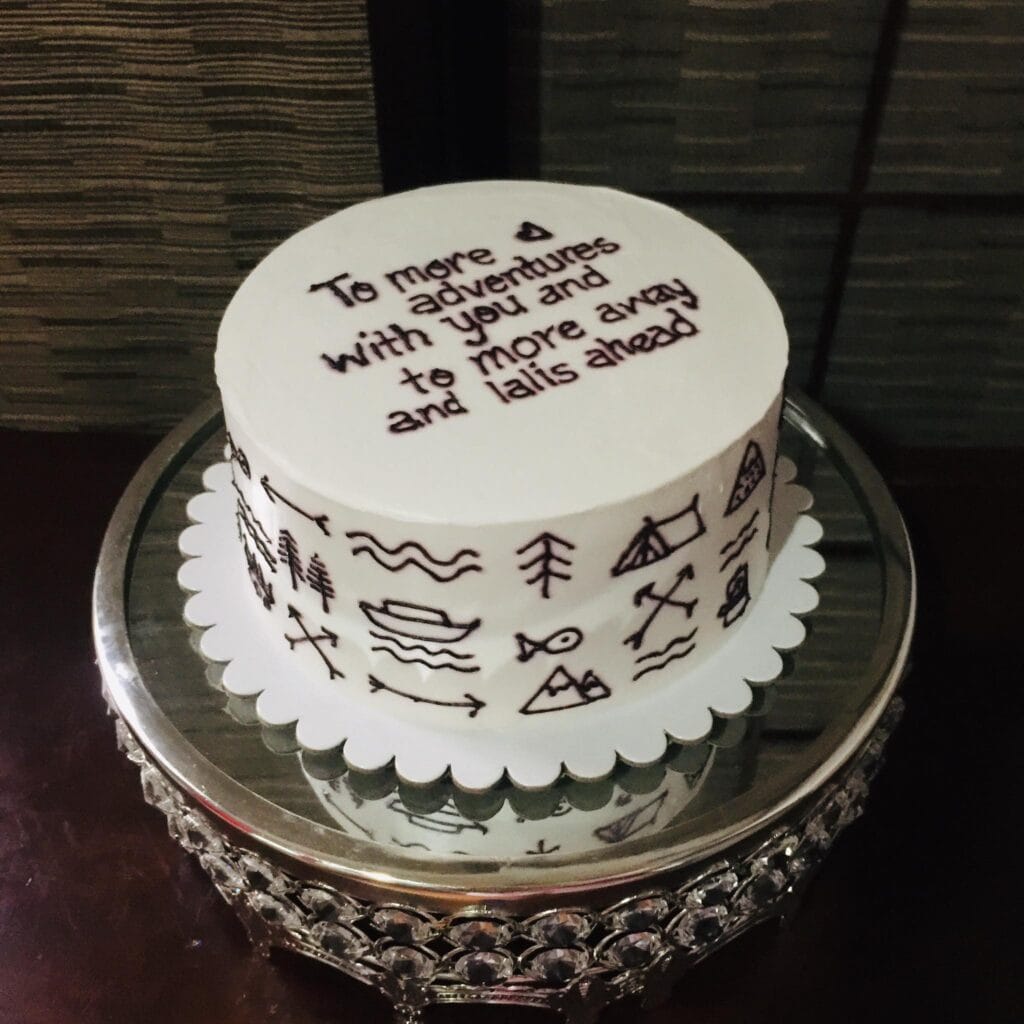 To more
adventures
with you and
to more away
and lalis ahead